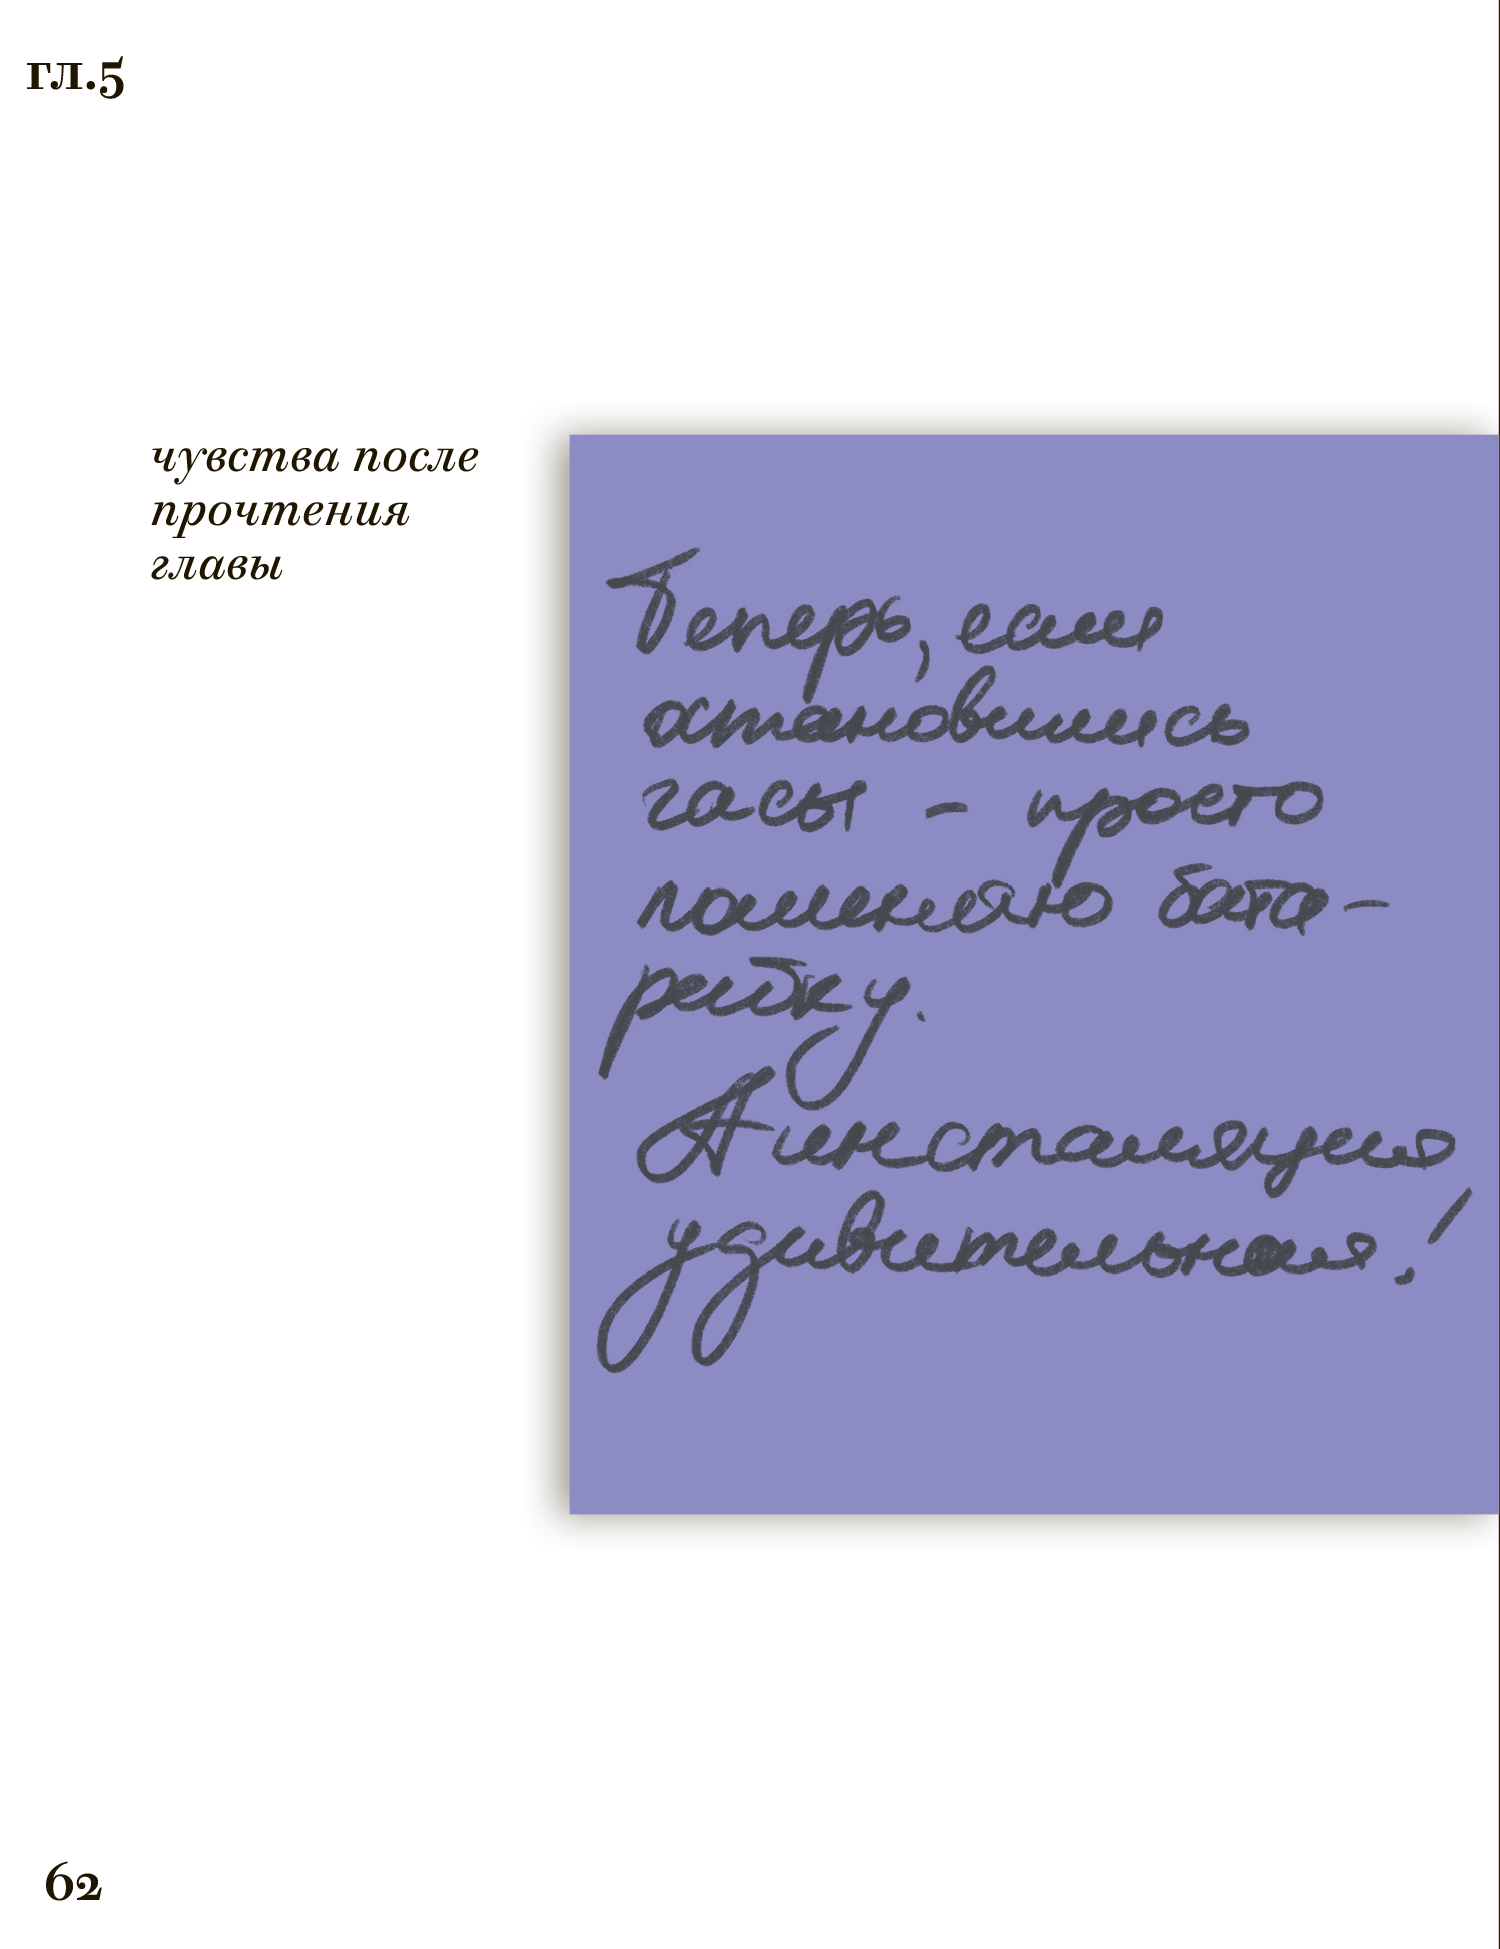 гл.5
чувства после
прочтения
главы
Теперь, если
остановились
часы - просто
поменяю бата-
рейку.
А инсталяция
удивительная!
62